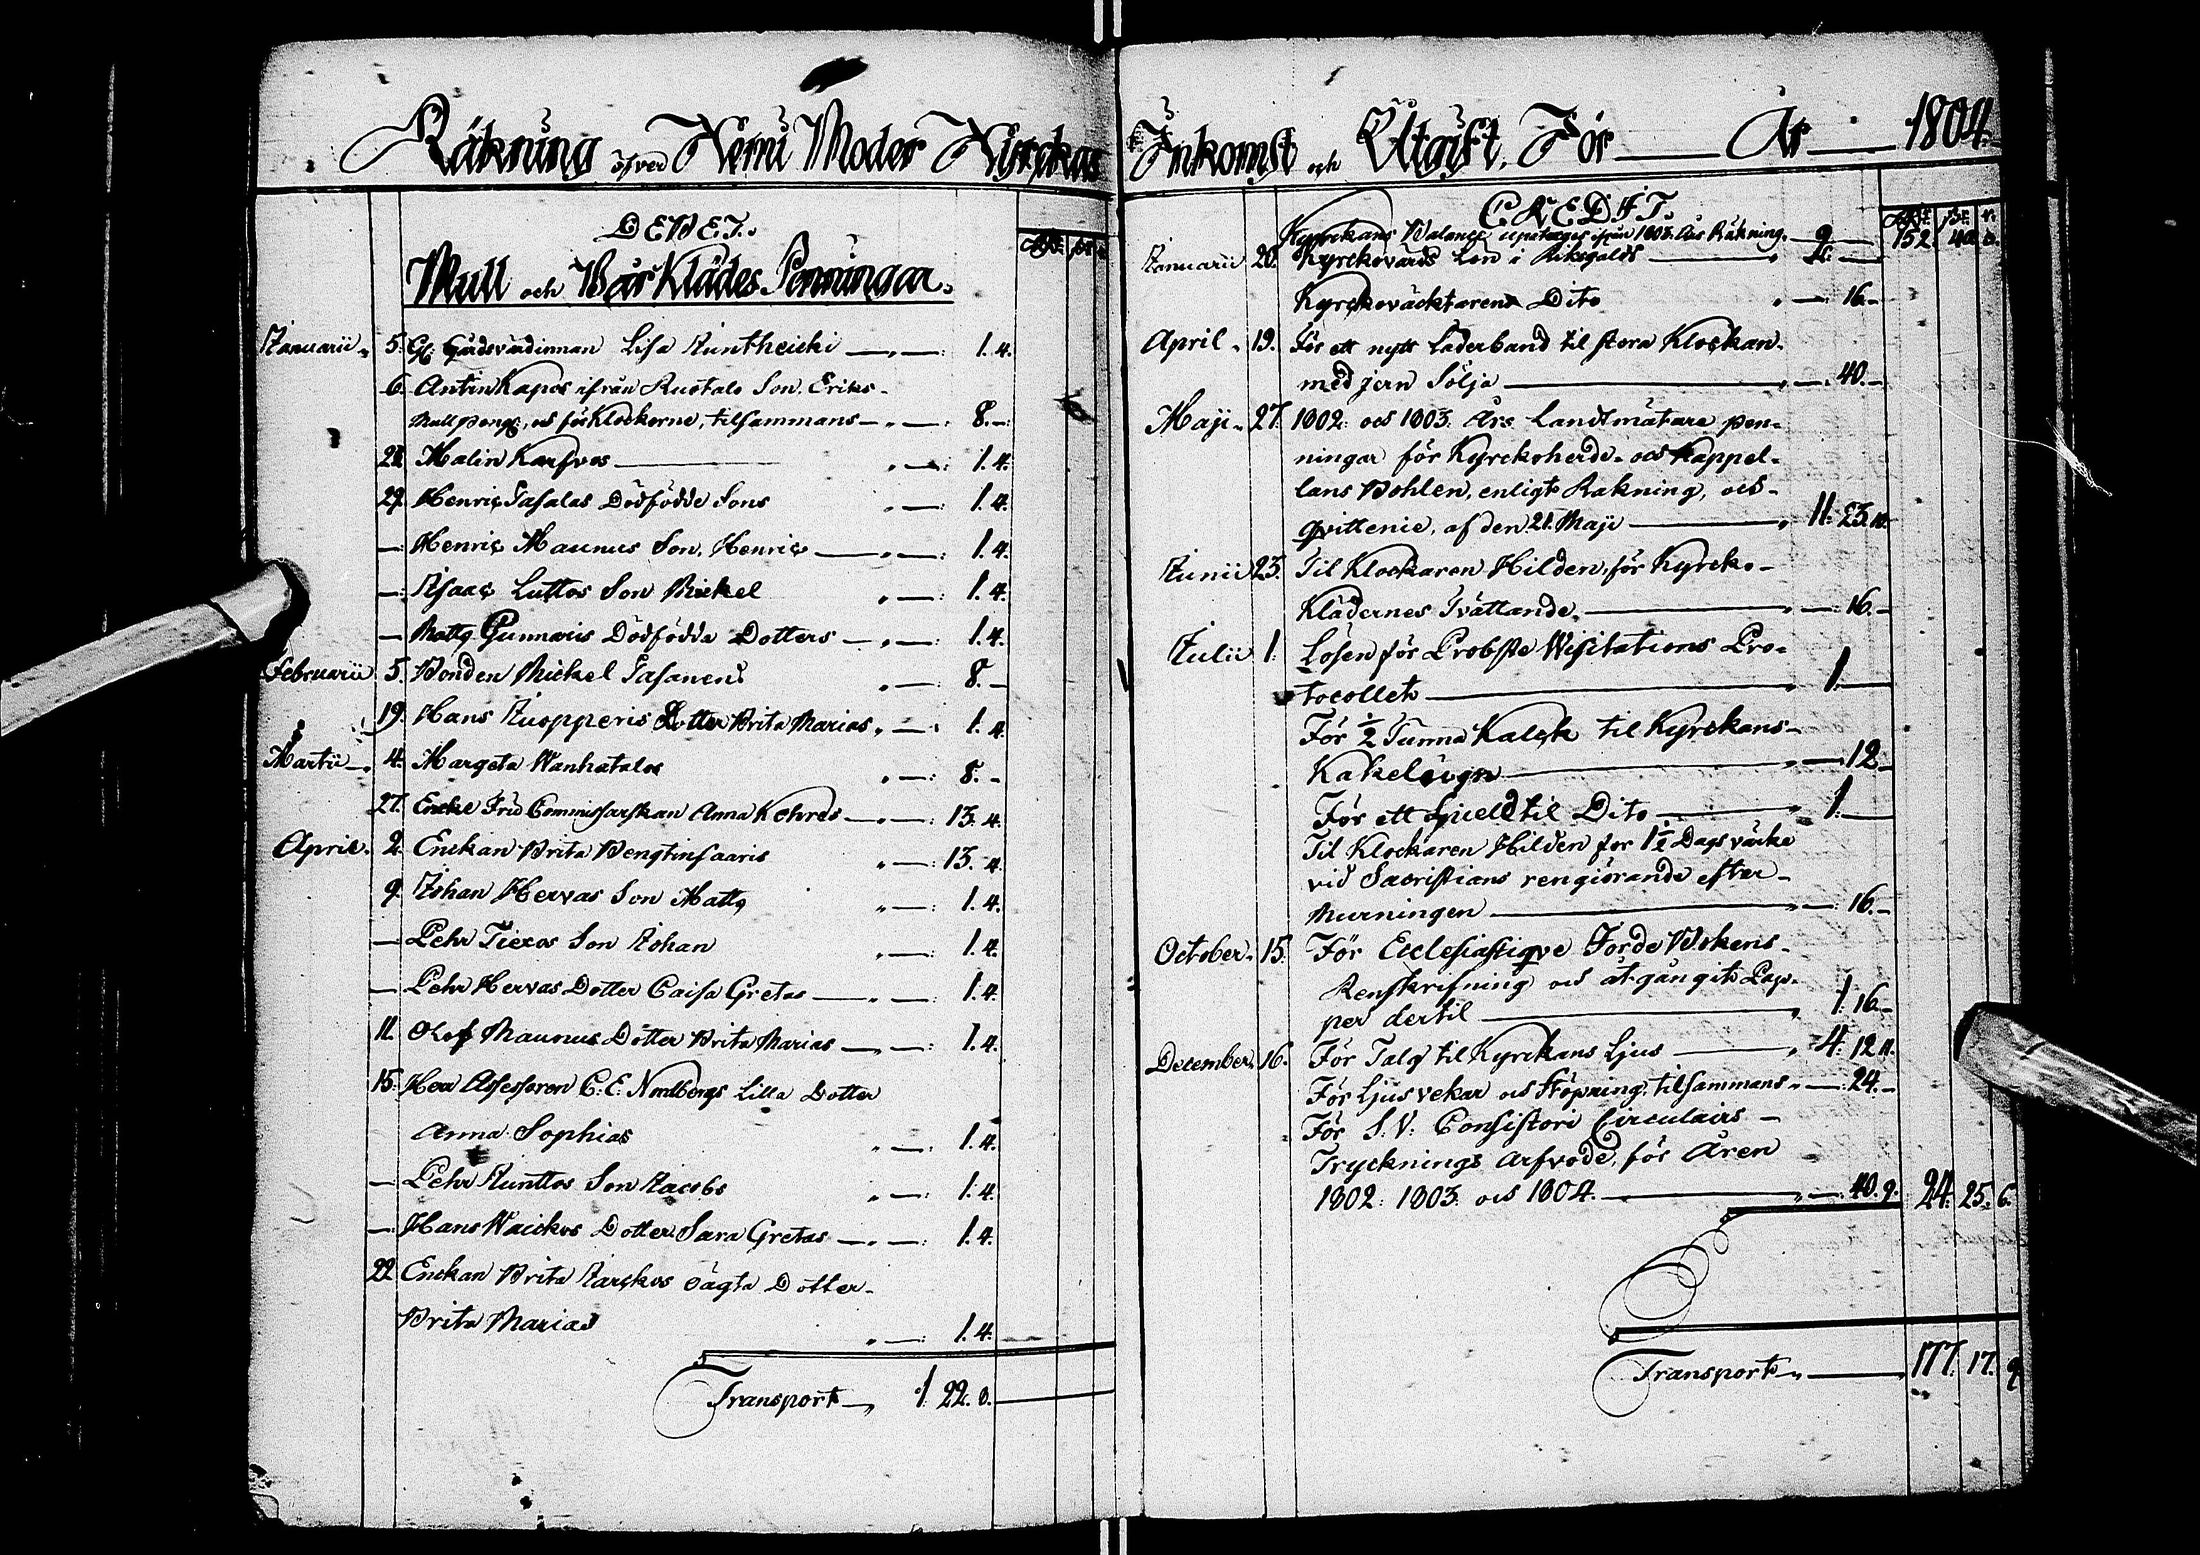 Räkning öfver Kemi Moder Kyrckas Inkomst och Utgift, För År 1804.
DEBET.
Mull och Bår Klädes Penningar.
Januarii 5. Gl. Gårdsvärdinnan Lisa Juntheicki 1. 4.
6. Antin Kapos ifrån Ruotalo Son, Eriks
Mull peng:, och för Klockorne, tilsammans 8. –
28. Malin Karfvos 1. 4.
29. Henric Tasalas Dödfödde Sons 1. 4.
– Henric Maunus Son, Henric 1. 4.
– Isaac Luttos Son Mickel 1. 4.
– Matts Gunnaris Dödfödda Dotters 1. 4.
Februarii 5. Bonden Mickel Tasanens 8. –
19. Hans Ruopperis Dotter Brita Marias 1. 4.
Martii 4. Margeta Wanhatalos 8. –
27. Encke Fru Commissarskan Anna Kohres 13. 4.
April. 2. Enckan Brita Bengtinsaaris 13. 4.
9. Johan Hervas Son Matts 1. 4.
– Pehr Tieros Son Johan 1. 4.
– Pehr Hervas Dotter Caisa Gretas 1. 4.
11. Olof Maunus Dotter Brita Marias 1. 4.
15. Herr Assessoren C: E: Nordbergs Lilla Dotter
Anna Sophias 1. 4.
– Pehr Junttos Son Jacobs 1. 4.
– Hans Waickos Dotter Sara Gretas 1. 4.
22. Enckan Brita Jarckos oägta Dotter
Brita Marias 1. 4.
Transport 1 22. 8.
CREDIT.
Kyrckans Balance upptages ifrån 1803. Års Räkning. 152. 40. 3.
Januarii 20. Kyrckovärds Lön i Riksgälds
Kyrckoväcktarens Dito 16. –
April 19. För ett nytt Läderband til stora Klockan
med jern Sölja 40. –
Maji 27. 1802: och 1803. Års Landtmätare pen-
ningar för Kyrckoherde- och Kappel-
lans Bohlen, enligt Räkning, och
qvittence, af den 21. Maji 11. 23.
Junii 23. Til Klockaren Hilden, för Kyrcko-
Klädernes Tvättande. 16. –
Julii 1. Lösen för Probste Wisitations Pro-
tocollet 1. –
För ½ Tunna Kalck til Kyrckans
Kakelugn 12. –
För ett spield til Dito 1. –
Til Klockaren Hilden för 1½ Dags värke
vid Sacristians rengiörande efter
Murningen 16. –
October 15. För Ecclesiastique Jorde Bokens
Renskrifning och åtgångit Pap-
per dertil 1. 16. –
December 16. För Talg til Kyrckans Ljus 4. 12
För Ljusvekar och Stöpning, tilsammans 24. –
För S: V: Consistorii Circulairs
Trycknings arfvode, för Åren
1802: 1803. och 1804. 40. 9. 24. 25. 6.
Transport 177. 17. 9